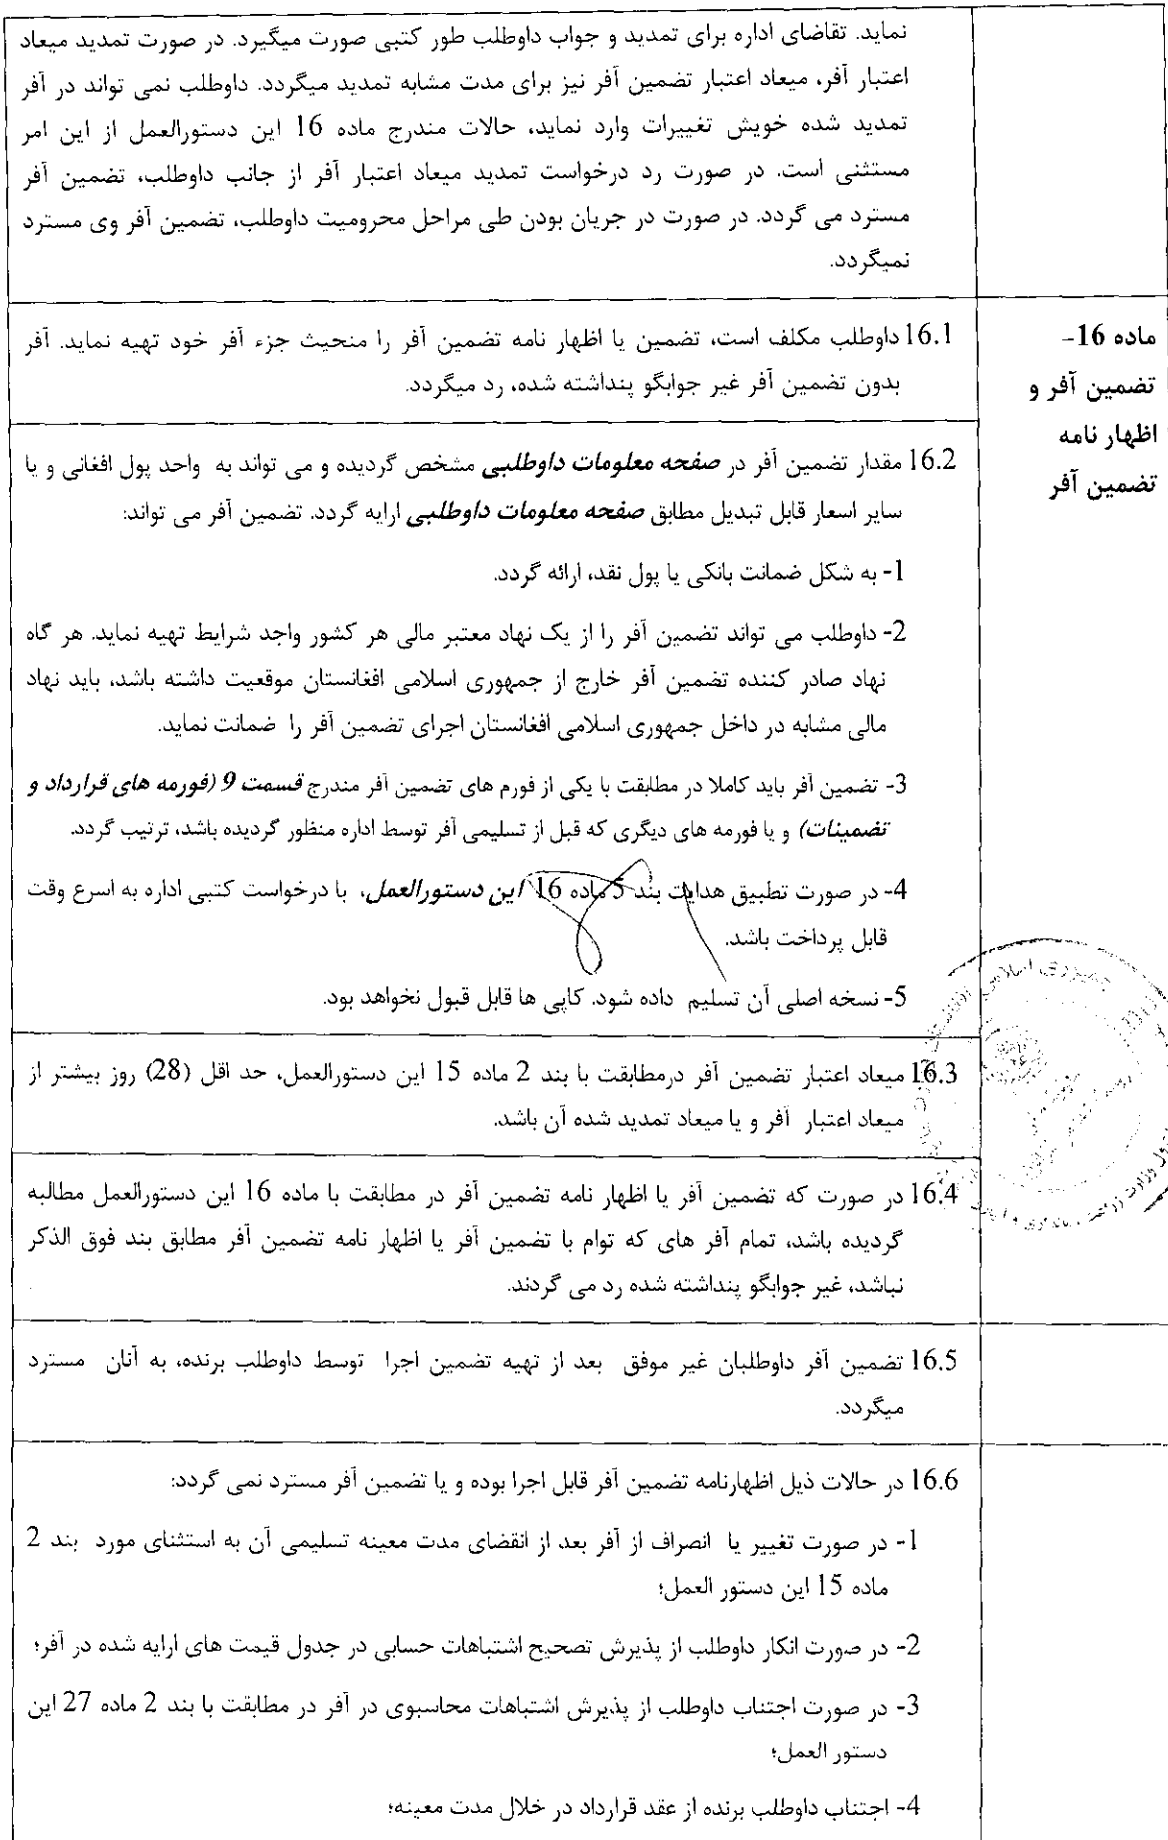 نماید. تقاضای اداره برای تمدید و جواب داوطلب طور کتبی صورت میگیرد. در صورت تمدید میعاد
اعتبار آفر، میعاد اعتبار تضمین آفر نیز برای مدت مشابه تمدید میگردد. داوطلب نمی تواند در آفر
تمدید شده خویش تغییرات وارد نماید، حالات مندرج ماده 16 این دستورالعمل از این امر
مستثنی است. در صورت رد درخواست تمدید میعاد اعتبار آفر از جانب داوطلب، تضمین آفر
مسترد می گردد. در صورت در جریان بودن طی مراحل محرومیت داوطلب، تضمین آفر وی مسترد
نمیگردد.
ماده 16-
تضمین آفر و
اظهار نامه
تضمین آفر
16.1 داوطلب مکلف است، تضمین یا اظهار نامه تضمین آفر را منحیث جزء آفر خود تهیه نماید. آفر
بدون تضمین آفر غیر جوابگو پنداشته شده، رد میگردد.
16.2 مقدار تضمین آفر در صفحه معلومات داوطلبی مشخص گردیده و می تواند به واحد پول افغانی و یا
سایر اسعار قابل تبدیل مطابق صفحه معلومات داوطلبی ارایه گردد. تضمین آفر می تواند:
1- به شکل ضمانت بانکی یا پول نقد، ارائه گردد.
2- داوطلب می تواند تضمین آفر را از یک نهاد معتبر مالی هر کشور واجد شرایط تهیه نماید. هر گاه
نهاد صادر کننده تضمین آفر خارج از جمهوری اسلامی افغانستان موقعیت داشته باشد، باید نهاد
مالی مشابه در داخل جمهوری اسلامی افغانستان اجرای تضمین آفر را ضمانت نماید.
3- تضمین آفر باید کاملا در مطابقت با یکی از فورم های تضمین آفر مندرج قسمت 9 (فورمه های قرارداد و
تضمینات) و یا فورمه های دیگری که قبل از تسلیمی آفر توسط اداره منظور گردیده باشد، ترتیب گردد.
4- در صورت تطبیق هدایت بند 5 ماده 16 این دستورالعمل، با درخواست کتبی اداره به اسرع وقت
قابل پرداخت باشد.
5- نسخه اصلی آن تسلیم داده شود. کاپی ها قابل قبول نخواهد بود.
16.3 میعاد اعتبار تضمین آفر درمطابقت با بند 2 ماده 15 این دستورالعمل، حد اقل (28) روز بیشتر از
میعاد اعتبار آفر و یا میعاد تمدید شده آن باشد.
16.4 در صورت که تضمین آفر یا اظهار نامه تضمین آفر در مطابقت با ماده 16 این دستورالعمل مطالبه
گردیده باشد، تمام آفر های که توام با تضمین آفر یا اظهار نامه تضمین آفر مطابق بند فوق الذکر
نباشد، غیر جوابگو پنداشته شده رد می گردند.
16.5 تضمین آفر داوطلبان غیر موفق بعد از تهیه تضمین اجرا توسط داوطلب برنده، به آنان مسترد
میگردد.
16.6 در حالات ذیل اظهارنامه تضمین آفر قابل اجرا بوده و یا تضمین آفر مسترد نمی گردد:
1- در صورت تغییر یا انصراف از آفر بعد از انقضای مدت معینه تسلیمی آن به استثنای مورد بند 2
ماده 15 این دستور العمل؛
2- در صورت انکار داوطلب از پذیرش تصحیح اشتباهات حسابی در جدول قیمت های ارایه شده در آفر؛
3- در صورت اجتناب داوطلب از پذیرش اشتباهات محاسبوی در آفر در مطابقت با بند 2 ماده 27 این
دستور العمل؛
4- اجتناب داوطلب برنده از عقد قرارداد در خلال مدت معینه؛